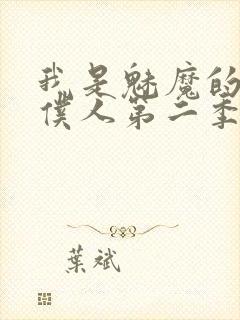 我是魅魔的
僕人第二季
葉斌